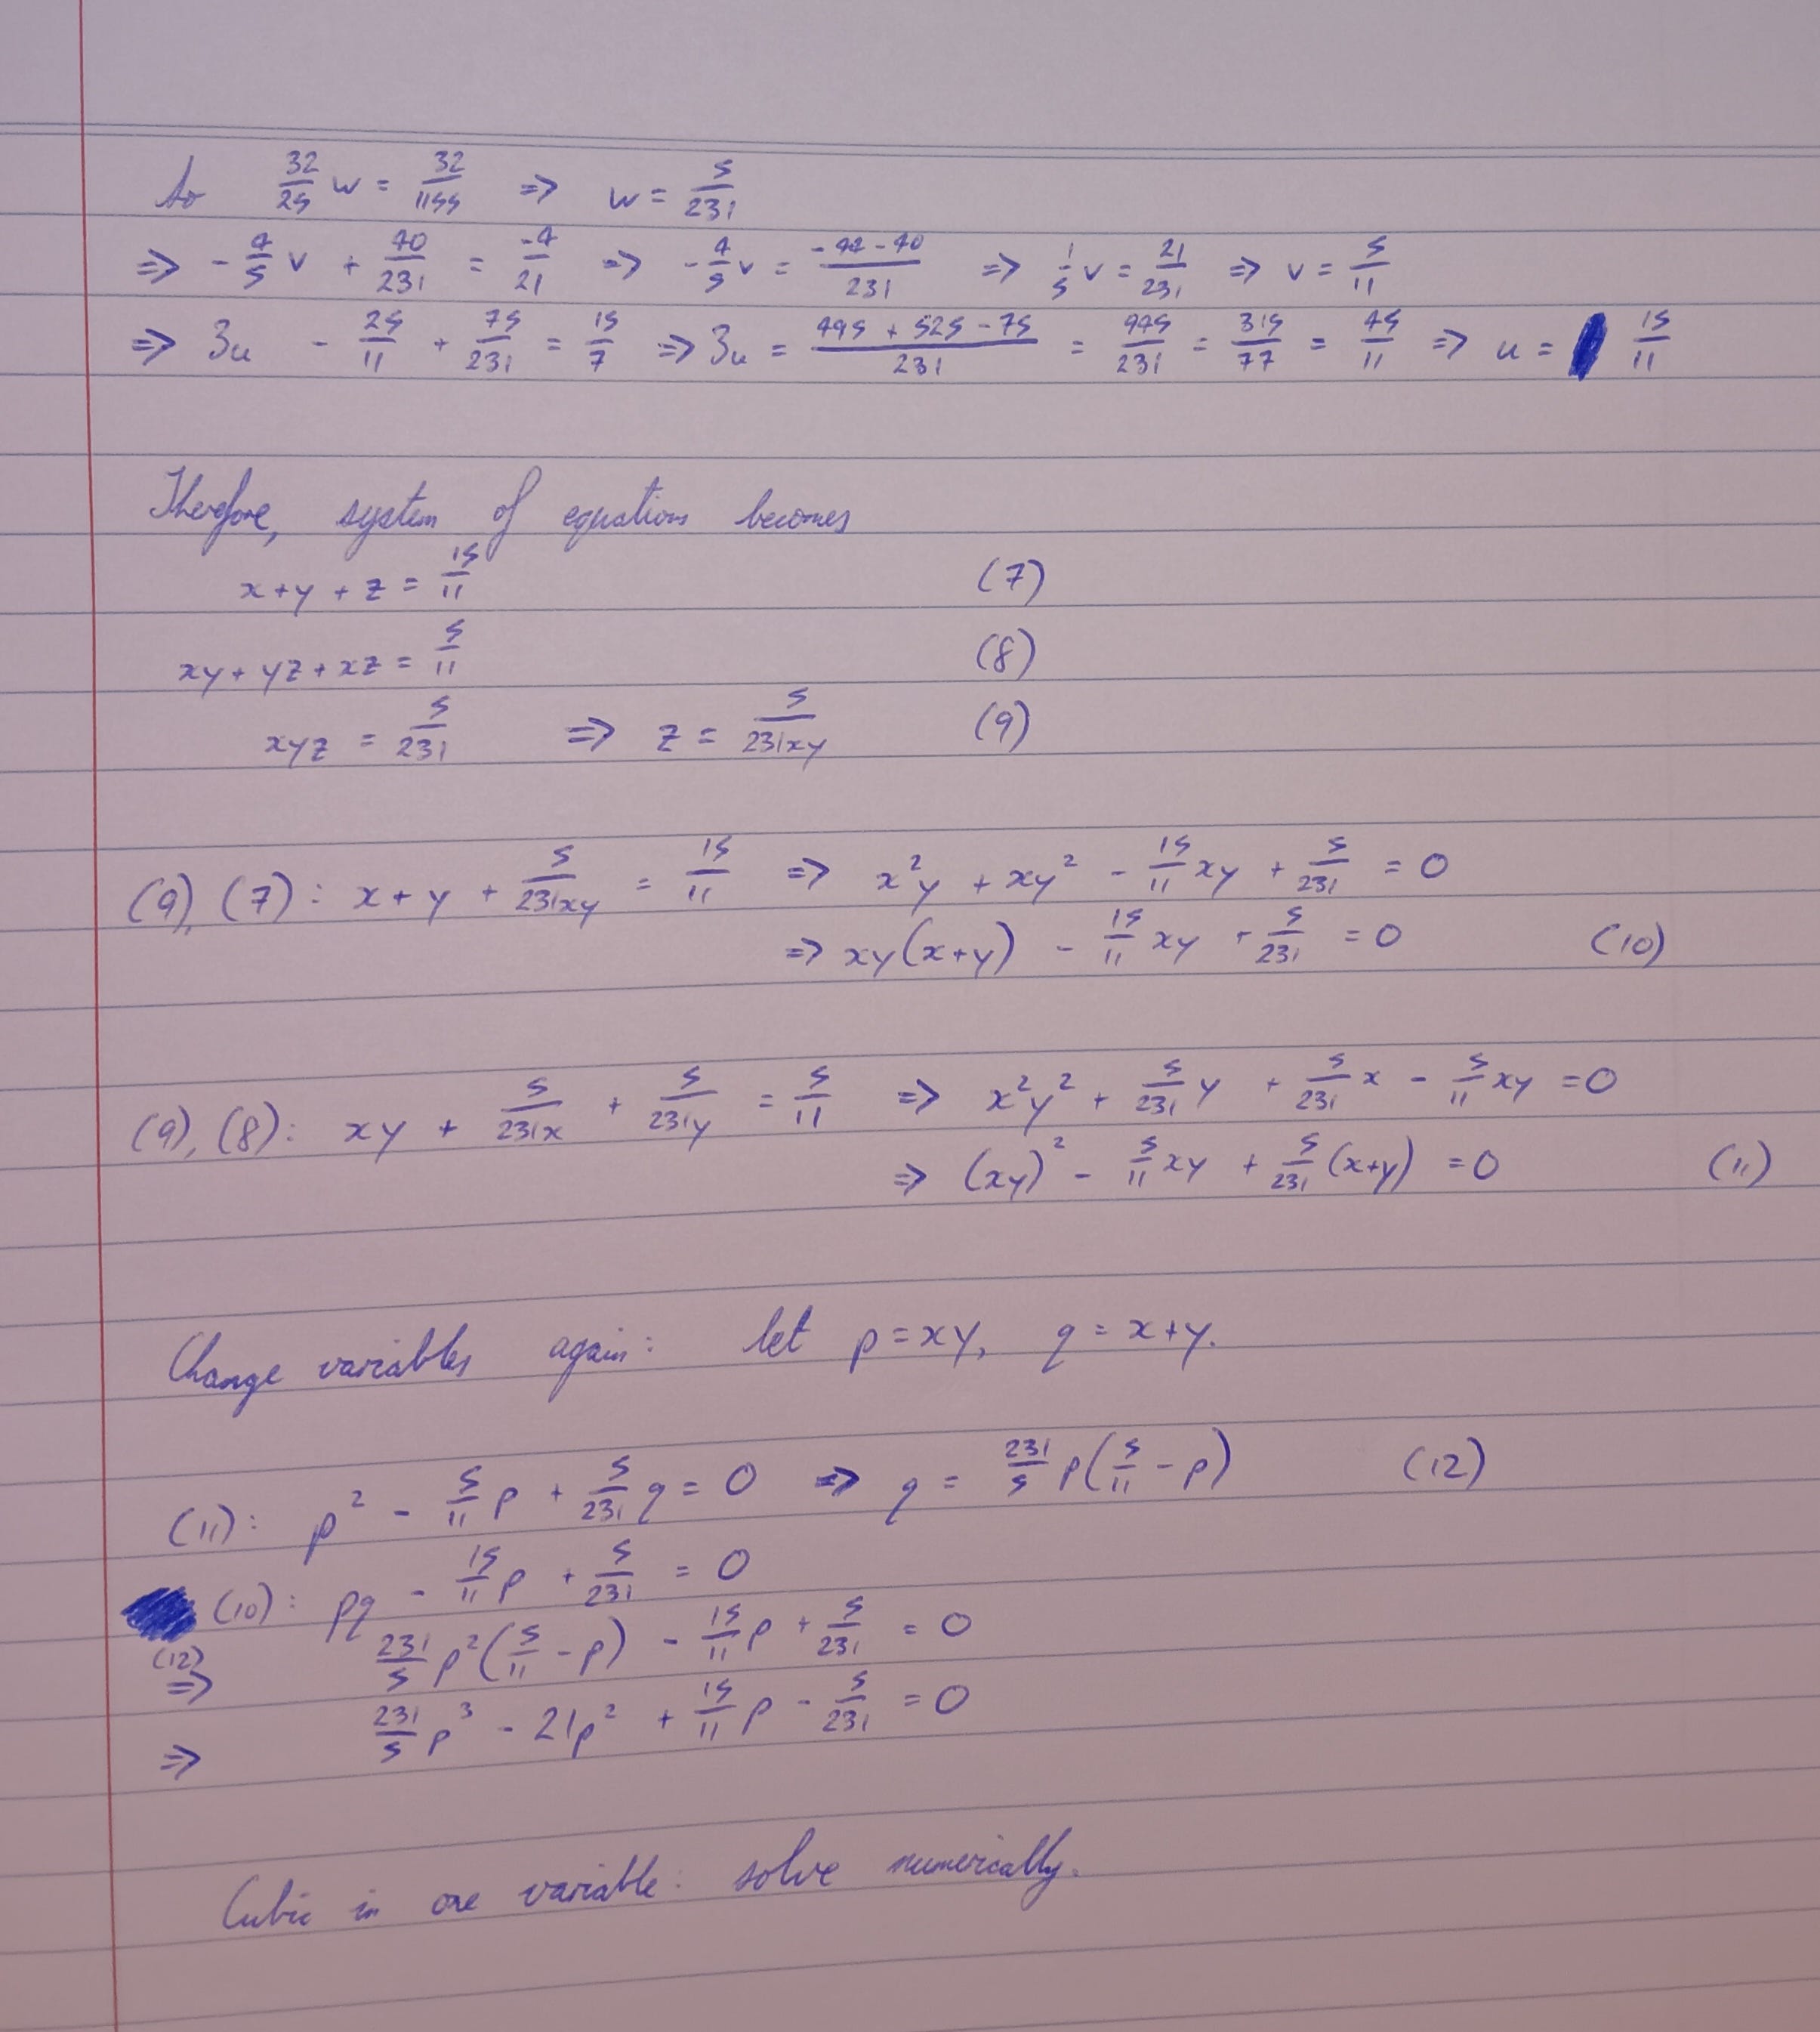 So 32/25 w = 32/1155 => w = 5/231
=> -4/5 v + 40/231 = -4/21 => -4/5 v = (-44-40)/231 => 1/5 v = 21/231 => v = 5/11
=> 3u - 25/11 + 75/231 = 15/7 => 3u = (495 + 525 - 75)/231 = 945/231 = 315/77 = 45/11 => u = 15/11
Therefore, system of equations becomes
x+y+z = 15/11 (7)
xy+yz+xz = 5/11 (8)
xyz = 5/231 => z = 5/231xy (9)
(9), (7): x + y + 5/231xy = 15/11 => x²y + xy² - 15/11 xy + 5/231 = 0
=> xy(x+y) - 15/11 xy + 5/231 = 0 (10)
(9), (8): xy + 5/231x + 5/231y = 5/11 => x²y² + 5/231 y + 5/231 x - 5/11 xy = 0
=> (xy)² - 5/11 xy + 5/231 (x+y) = 0 (11)
Change variables again: let p = xy, q = x+y.
(11): p² - 5/11 p + 5/231 q = 0 => q = 231/5 p(5/11 - p) (12)
(10): pq - 15/11 p + 5/231 = 0
(12) => 231/5 p²(5/11 - p) - 15/11 p + 5/231 = 0
=> 231/5 p³ - 21p² + 15/11 p - 5/231 = 0
Cubic in one variable: solve numerically.